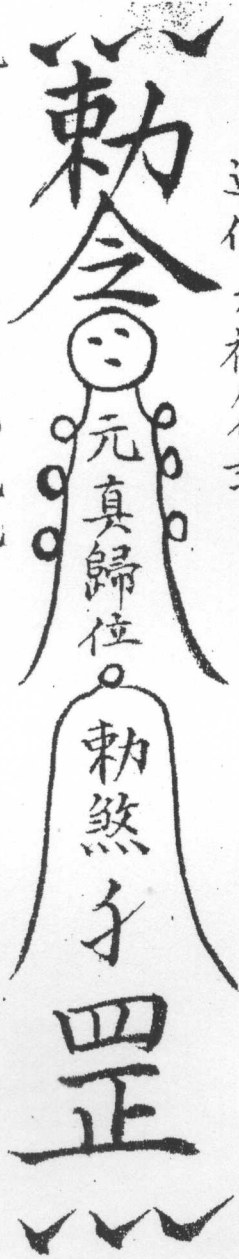 勅令
元真歸位
勅煞
罡